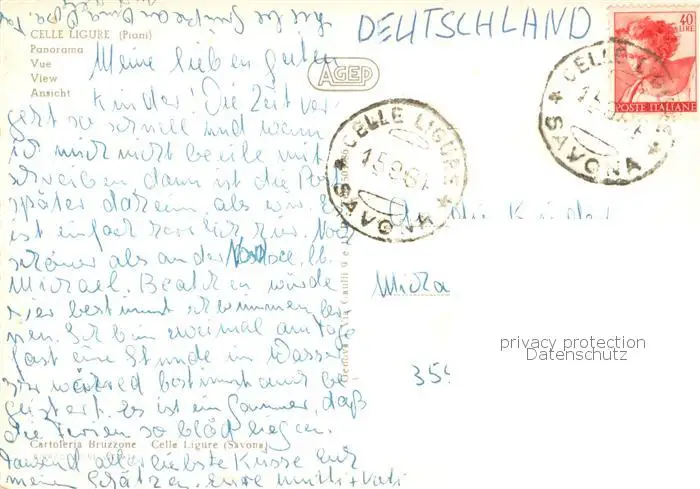 DEUTSCHLAND
40
LIRE
POSTE ITALIANE
CELLE LIGURE (Piani)
Panorama
Vue
View
Ansicht
AGEP
Meine lieben guten
Kinder! Die Zeit ver-
geht so schnell und wenn
ich mich nicht beeile mit
schreiben dann ist die Post
später daheim als wir. Es
ist einfach herrlich hier. Noch
schöner als an der Nordsee, lb.
Michael. Beate würde
hier bestimmt schwimmen ler-
nen. Ich bin zweimal am Tage
fast eine Stunde im Wasser
wäre bestimmt auch be-
geistert. Es ist ein Jammer, daß
die Ferien so blöd liegen.
Tausend allerliebste Küsse Euch
meinen Schätzen. Eure Mutti + Vati
CELLE LIGURE
SAVONA
CELLE LIGURE
SAVONA
An die Kinder
Micha
35
privacy protection
Datenschutz
Cartoleria Bruzzone - Celle Ligure (Savona)